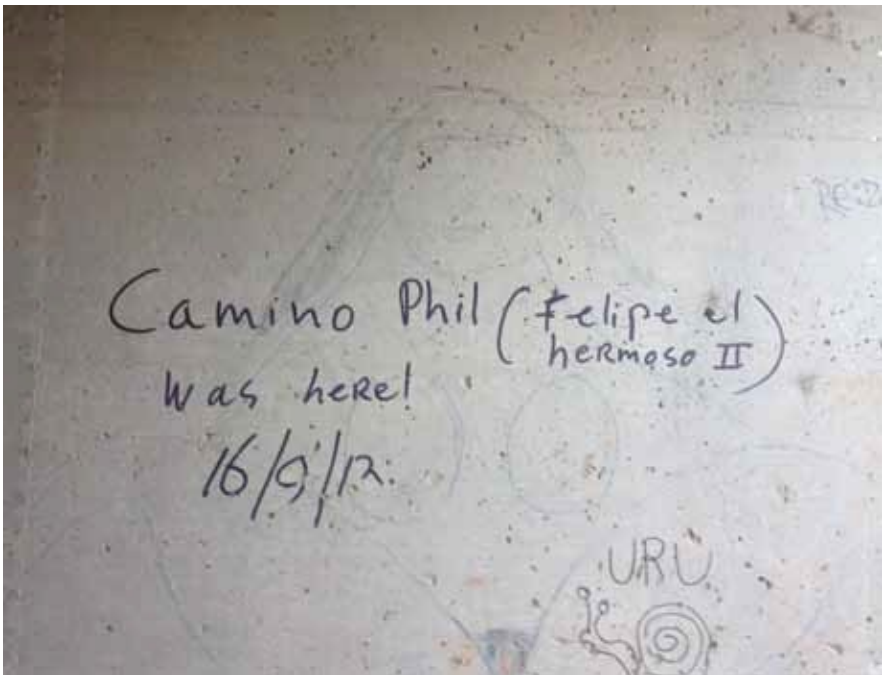 Camino Phil (felipe el
hermoso II)
was here!
16/9/12
URU